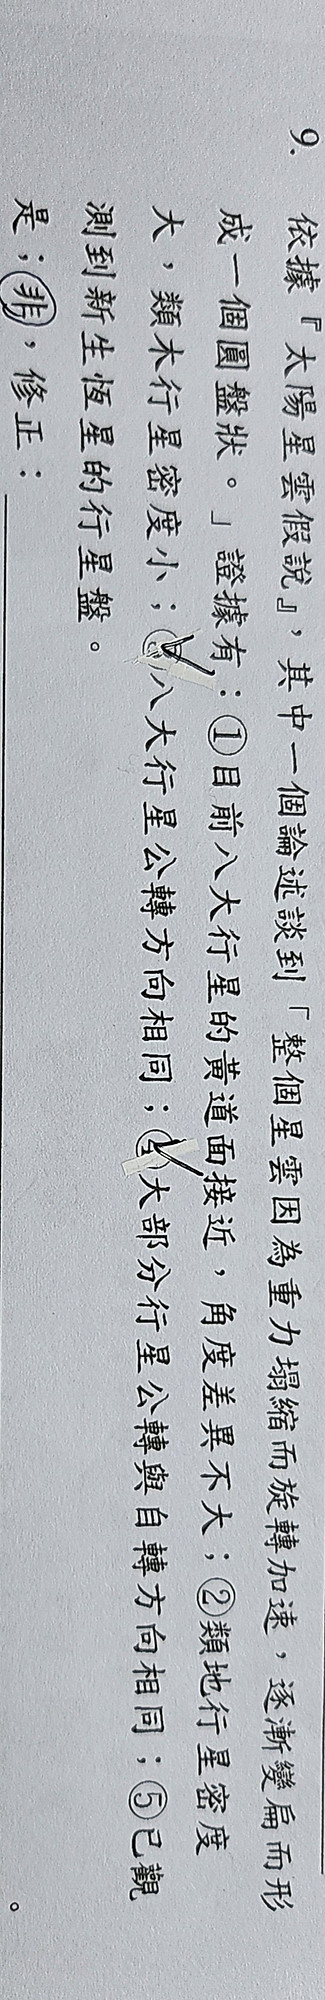 9. 依據『太陽星雲假說』,其中一個論述談到「整個星雲因為重力塌縮而旋轉加速,逐漸變扁而形
成一個圓盤狀。」證據有:①目前八大行星的黃道面接近,角度差異不大;②類地行星密度
大,類木行星密度小;③八大行星公轉方向相同;④大部分行星公轉與自轉方向相同;⑤已觀
測到新生恆星的行星盤。
是;非,修正:。